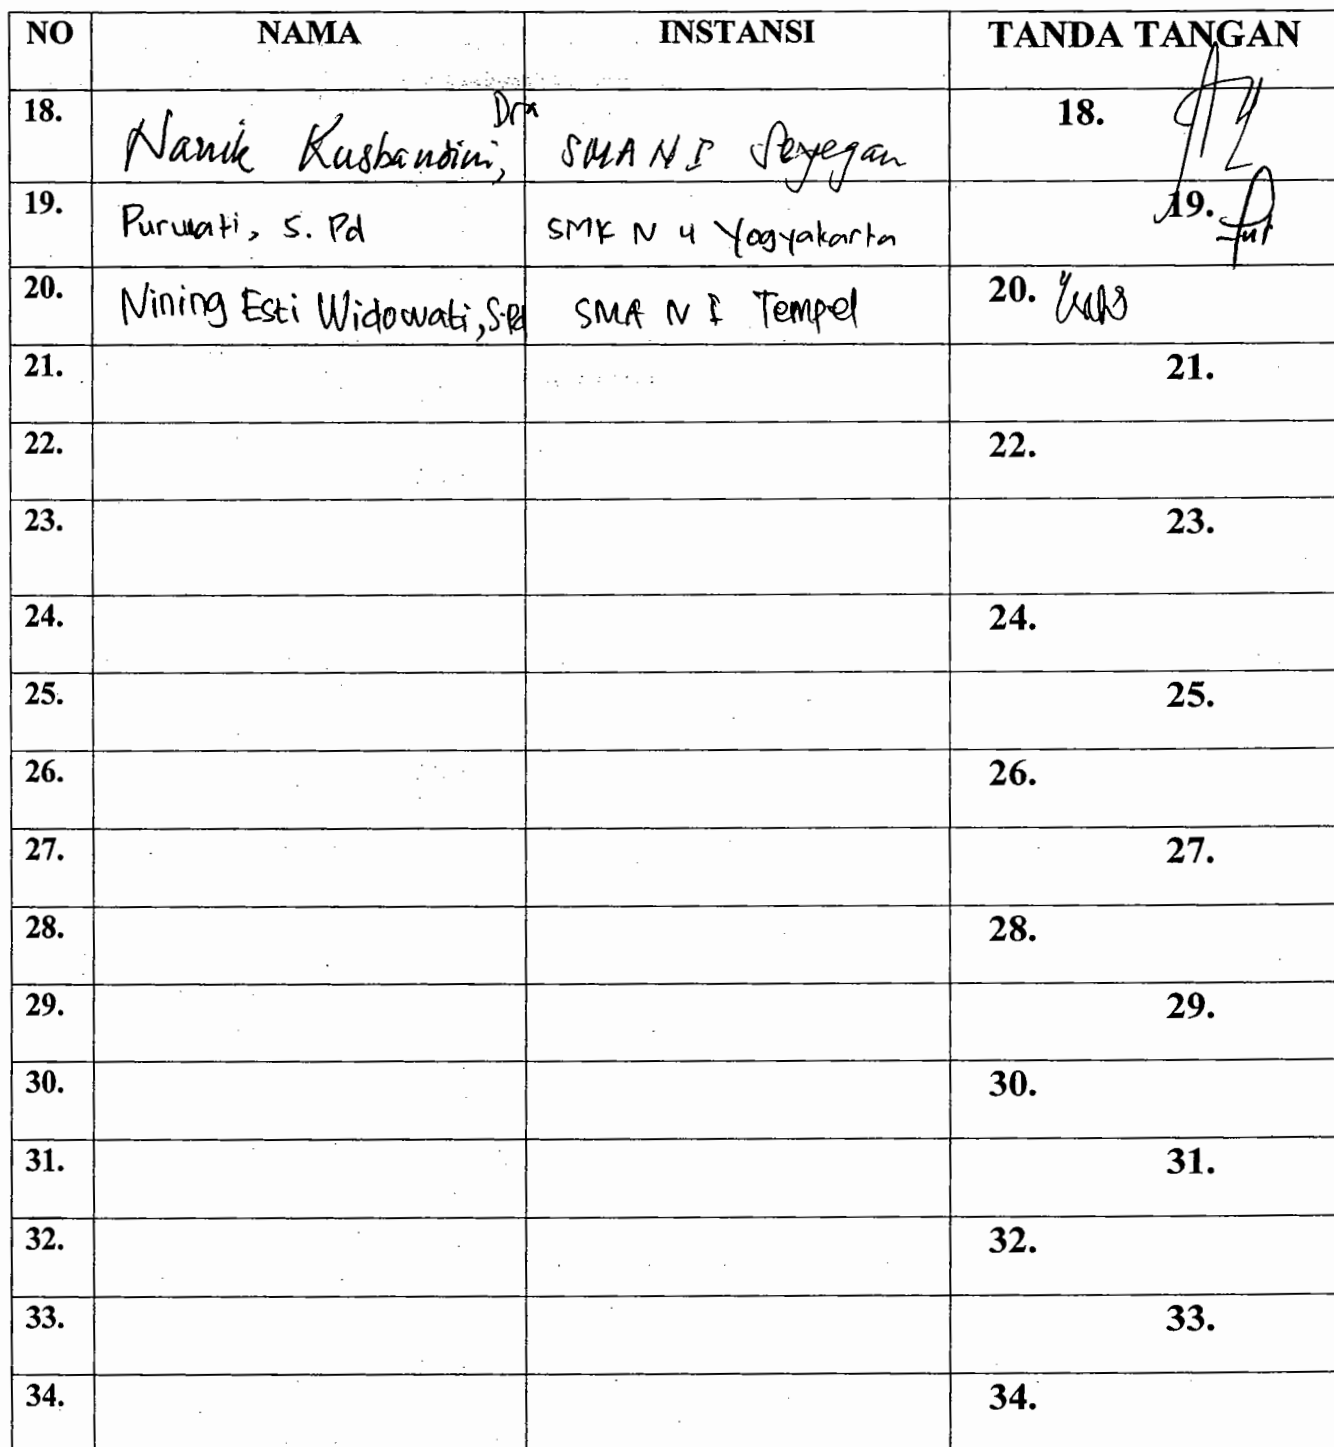 NO NAMA INSTANSI TANDA TANGAN
18. Nanik Kusbandini, Dra SMA N I Seyegan 18.
19. Purwati, S. Pd SMK N 4 Yogyakarta 19.
20. Nining Esti Widowati, S.Pd SMA N I Tempel 20.
21. 21.
22. 22.
23. 23.
24. 24.
25. 25.
26. 26.
27. 27.
28. 28.
29. 29.
30. 30.
31. 31.
32. 32.
33. 33.
34. 34.